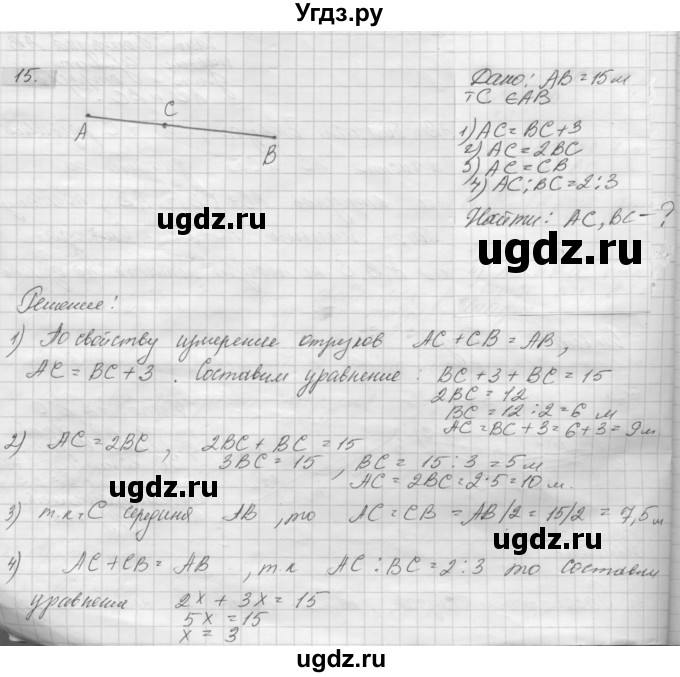 Угдз.ру
15.
C
A
B
Дано: AB = 15 м
тC ∈ AB
1) AC = BC + 3
2) AC = 2BC
3) AC = CB
4) AC : BC = 2 : 3
Найти: AC, BC - ?
ugdz.ru
ugdz.ru
Решение:
1) По свойству измерение отрузков AC + CB = AB,
AC = BC + 3 . Составим уравнение : BC + 3 + BC = 15
2BC = 12
BC = 12 : 2 = 6 м
AC = BC + 3 = 6 + 3 = 9 м
ugdz.ru
2) AC = 2BC , 2BC + BC = 15
3BC = 15 , BC = 15 : 3 = 5 м
AC = 2BC = 2·5 = 10 м.
ugdz.ru
3) т.к тC середина AB , то AC = CB = AB/2 = 15/2 = 7,5 м
ugdz.ru
4) AC + CB = AB , т.к AC : BC = 2 : 3 то составим
уравнение 2x + 3x = 15
5x = 15
x = 3
ugdz.ru